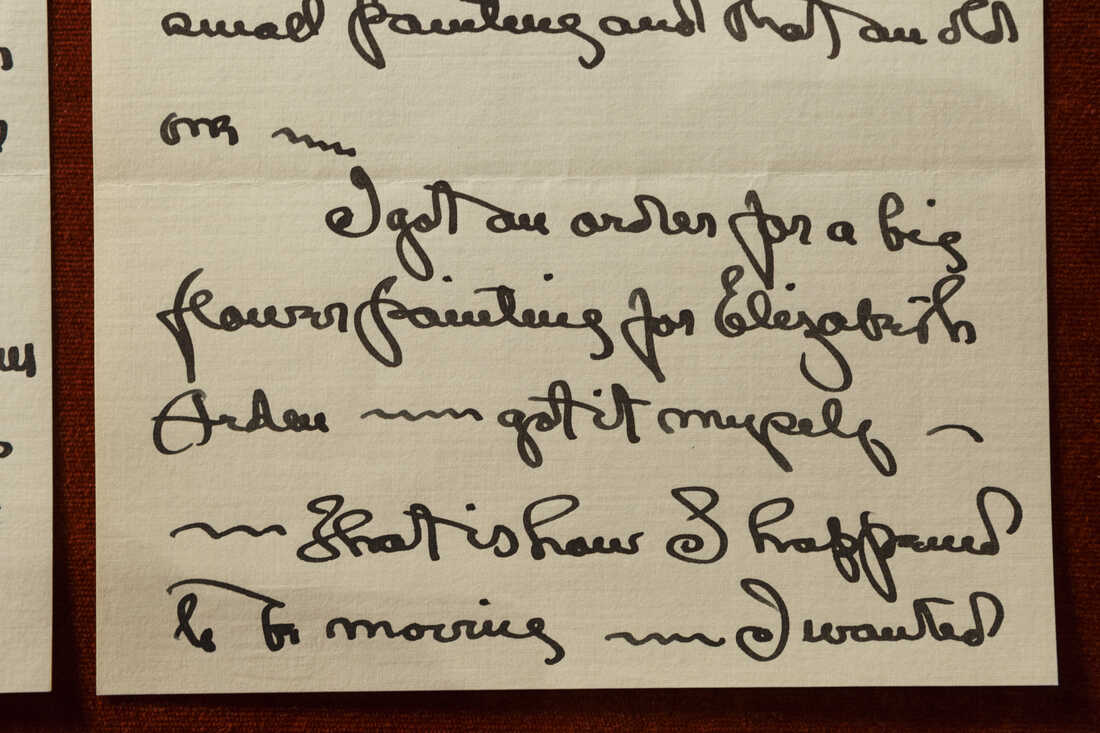 small painting and that an old
one ~
I got an order for a big
flower painting for Elizabeth
Arden ~ got it myself ~
~ That is how I happened
to be moving ~ I wanted